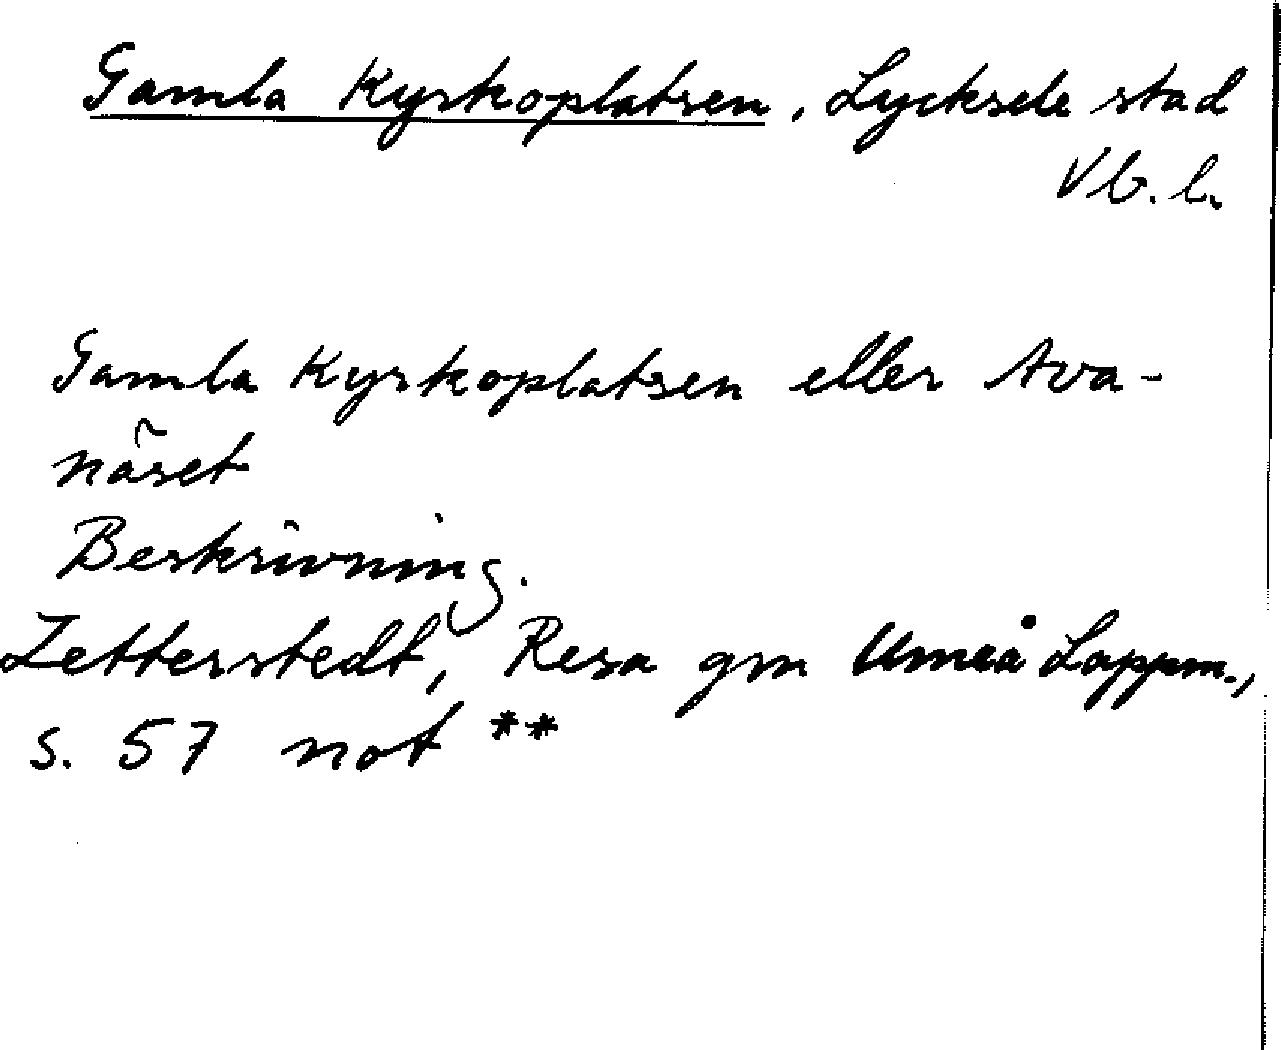 Gamla Kyrkoplatsen, Lycksele stad
Vb. l.
Gamla Kyrkoplatsen eller Ava-
näset
Beskrivning.
Zetterstedt, Resa gm Umeå Lappm.,
s. 57 not **